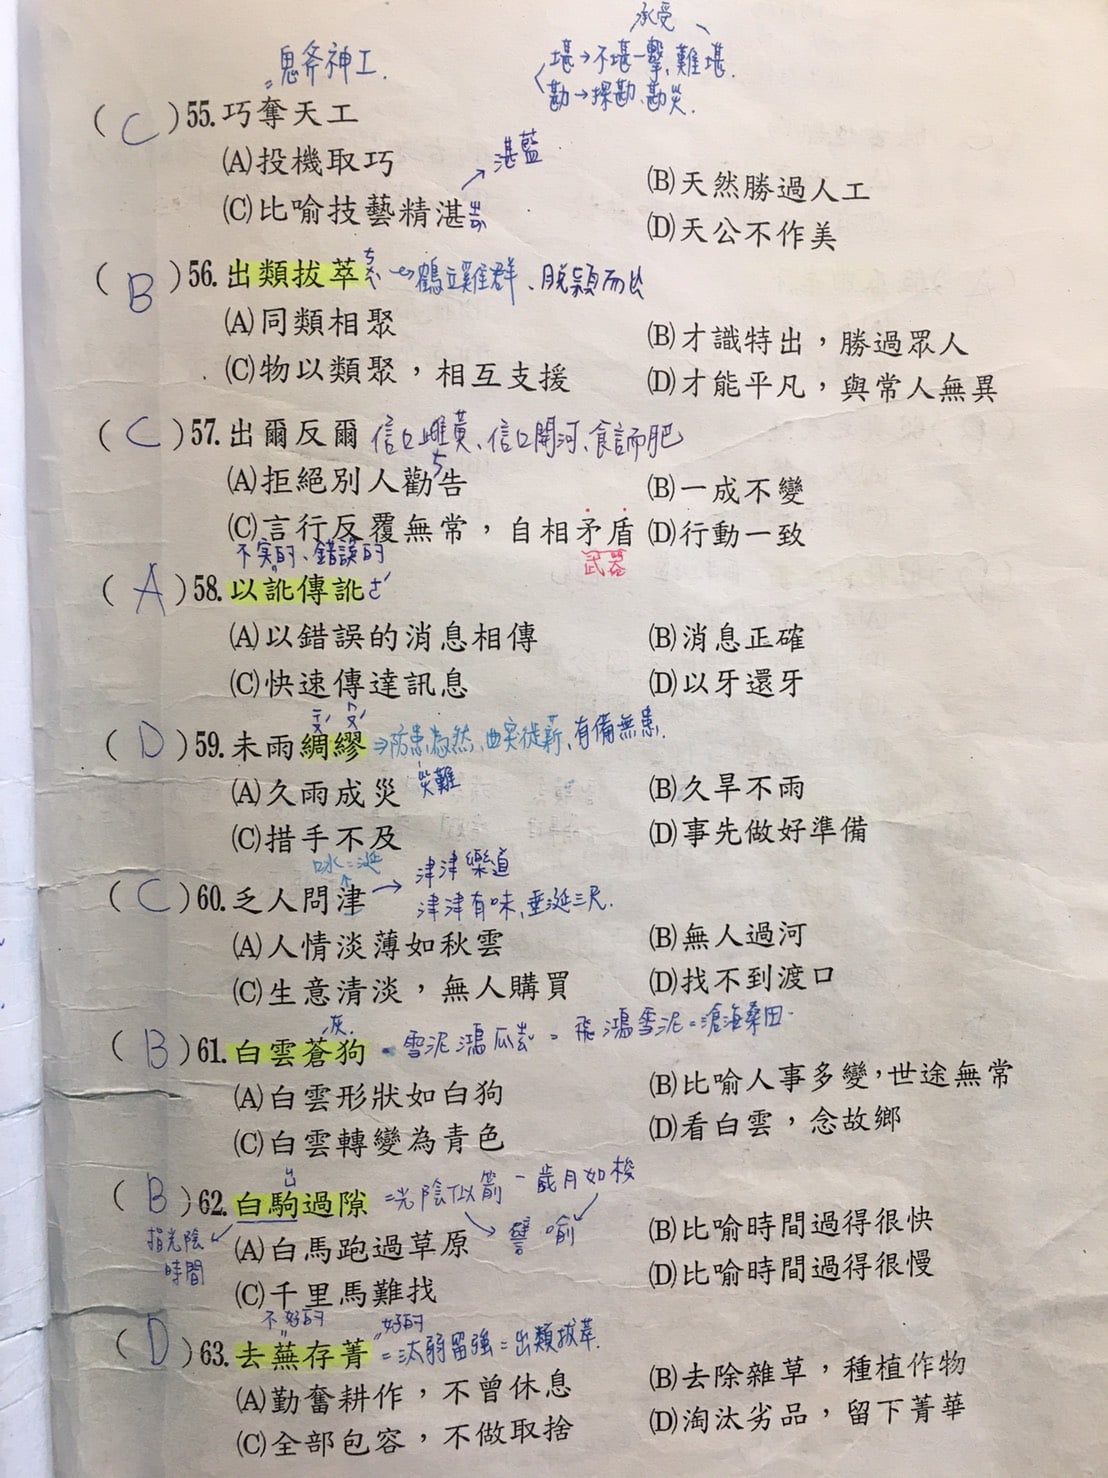 承受
鬼斧神工.
堪→不堪一擊,難堪.
勘→探勘、勘災.
(C)55.巧奪天工
湛藍
(A)投機取巧 (B)天然勝過人工
(C)比喻技藝精湛 (D)天公不作美
(B)56.出類拔萃 鶴立雞群、脫穎而出
(A)同類相聚 (B)才識特出，勝過眾人
(C)物以類聚，相互支援 (D)才能平凡，與常人無異
(C)57.出爾反爾 信口雌黃、信口開河、食言而肥
(A)拒絕別人勸告 (B)一成不變
(C)言行反覆無常，自相矛盾 (D)行動一致
不實的、錯誤的 武器
(A)58.以訛傳訛 ㄜˊ
(A)以錯誤的消息相傳 (B)消息正確
(C)快速傳達訊息 (D)以牙還牙
(D)59.未雨綢繆⇒防患未然、曲突徙薪、有備無患.
災難
(A)久雨成災 (B)久旱不雨
(C)措手不及 (D)事先做好準備
口水=涎
津津樂道
(C)60.乏人問津→津津有味、垂涎三尺.
(A)人情淡薄如秋雲 (B)無人過河
(C)生意清淡，無人購買 (D)找不到渡口
灰.
(B)61.白雲蒼狗=雪泥鴻爪=飛鴻雪泥=滄海桑田
(A)白雲形狀如白狗 (B)比喻人事多變，世途無常
(C)白雲轉變為青色 (D)看白雲，念故鄉
(B)62.白駒過隙=光陰似箭=歲月如梭
譬喻
指光陰
時間
(A)白馬跑過草原 (B)比喻時間過得很快
(C)千里馬難找 (D)比喻時間過得很慢
不好的 好的
(D)63.去蕪存菁=汰弱留強=出類拔萃.
(A)勤奮耕作，不曾休息 (B)去除雜草，種植作物
(C)全部包容，不做取捨 (D)淘汰劣品，留下菁華